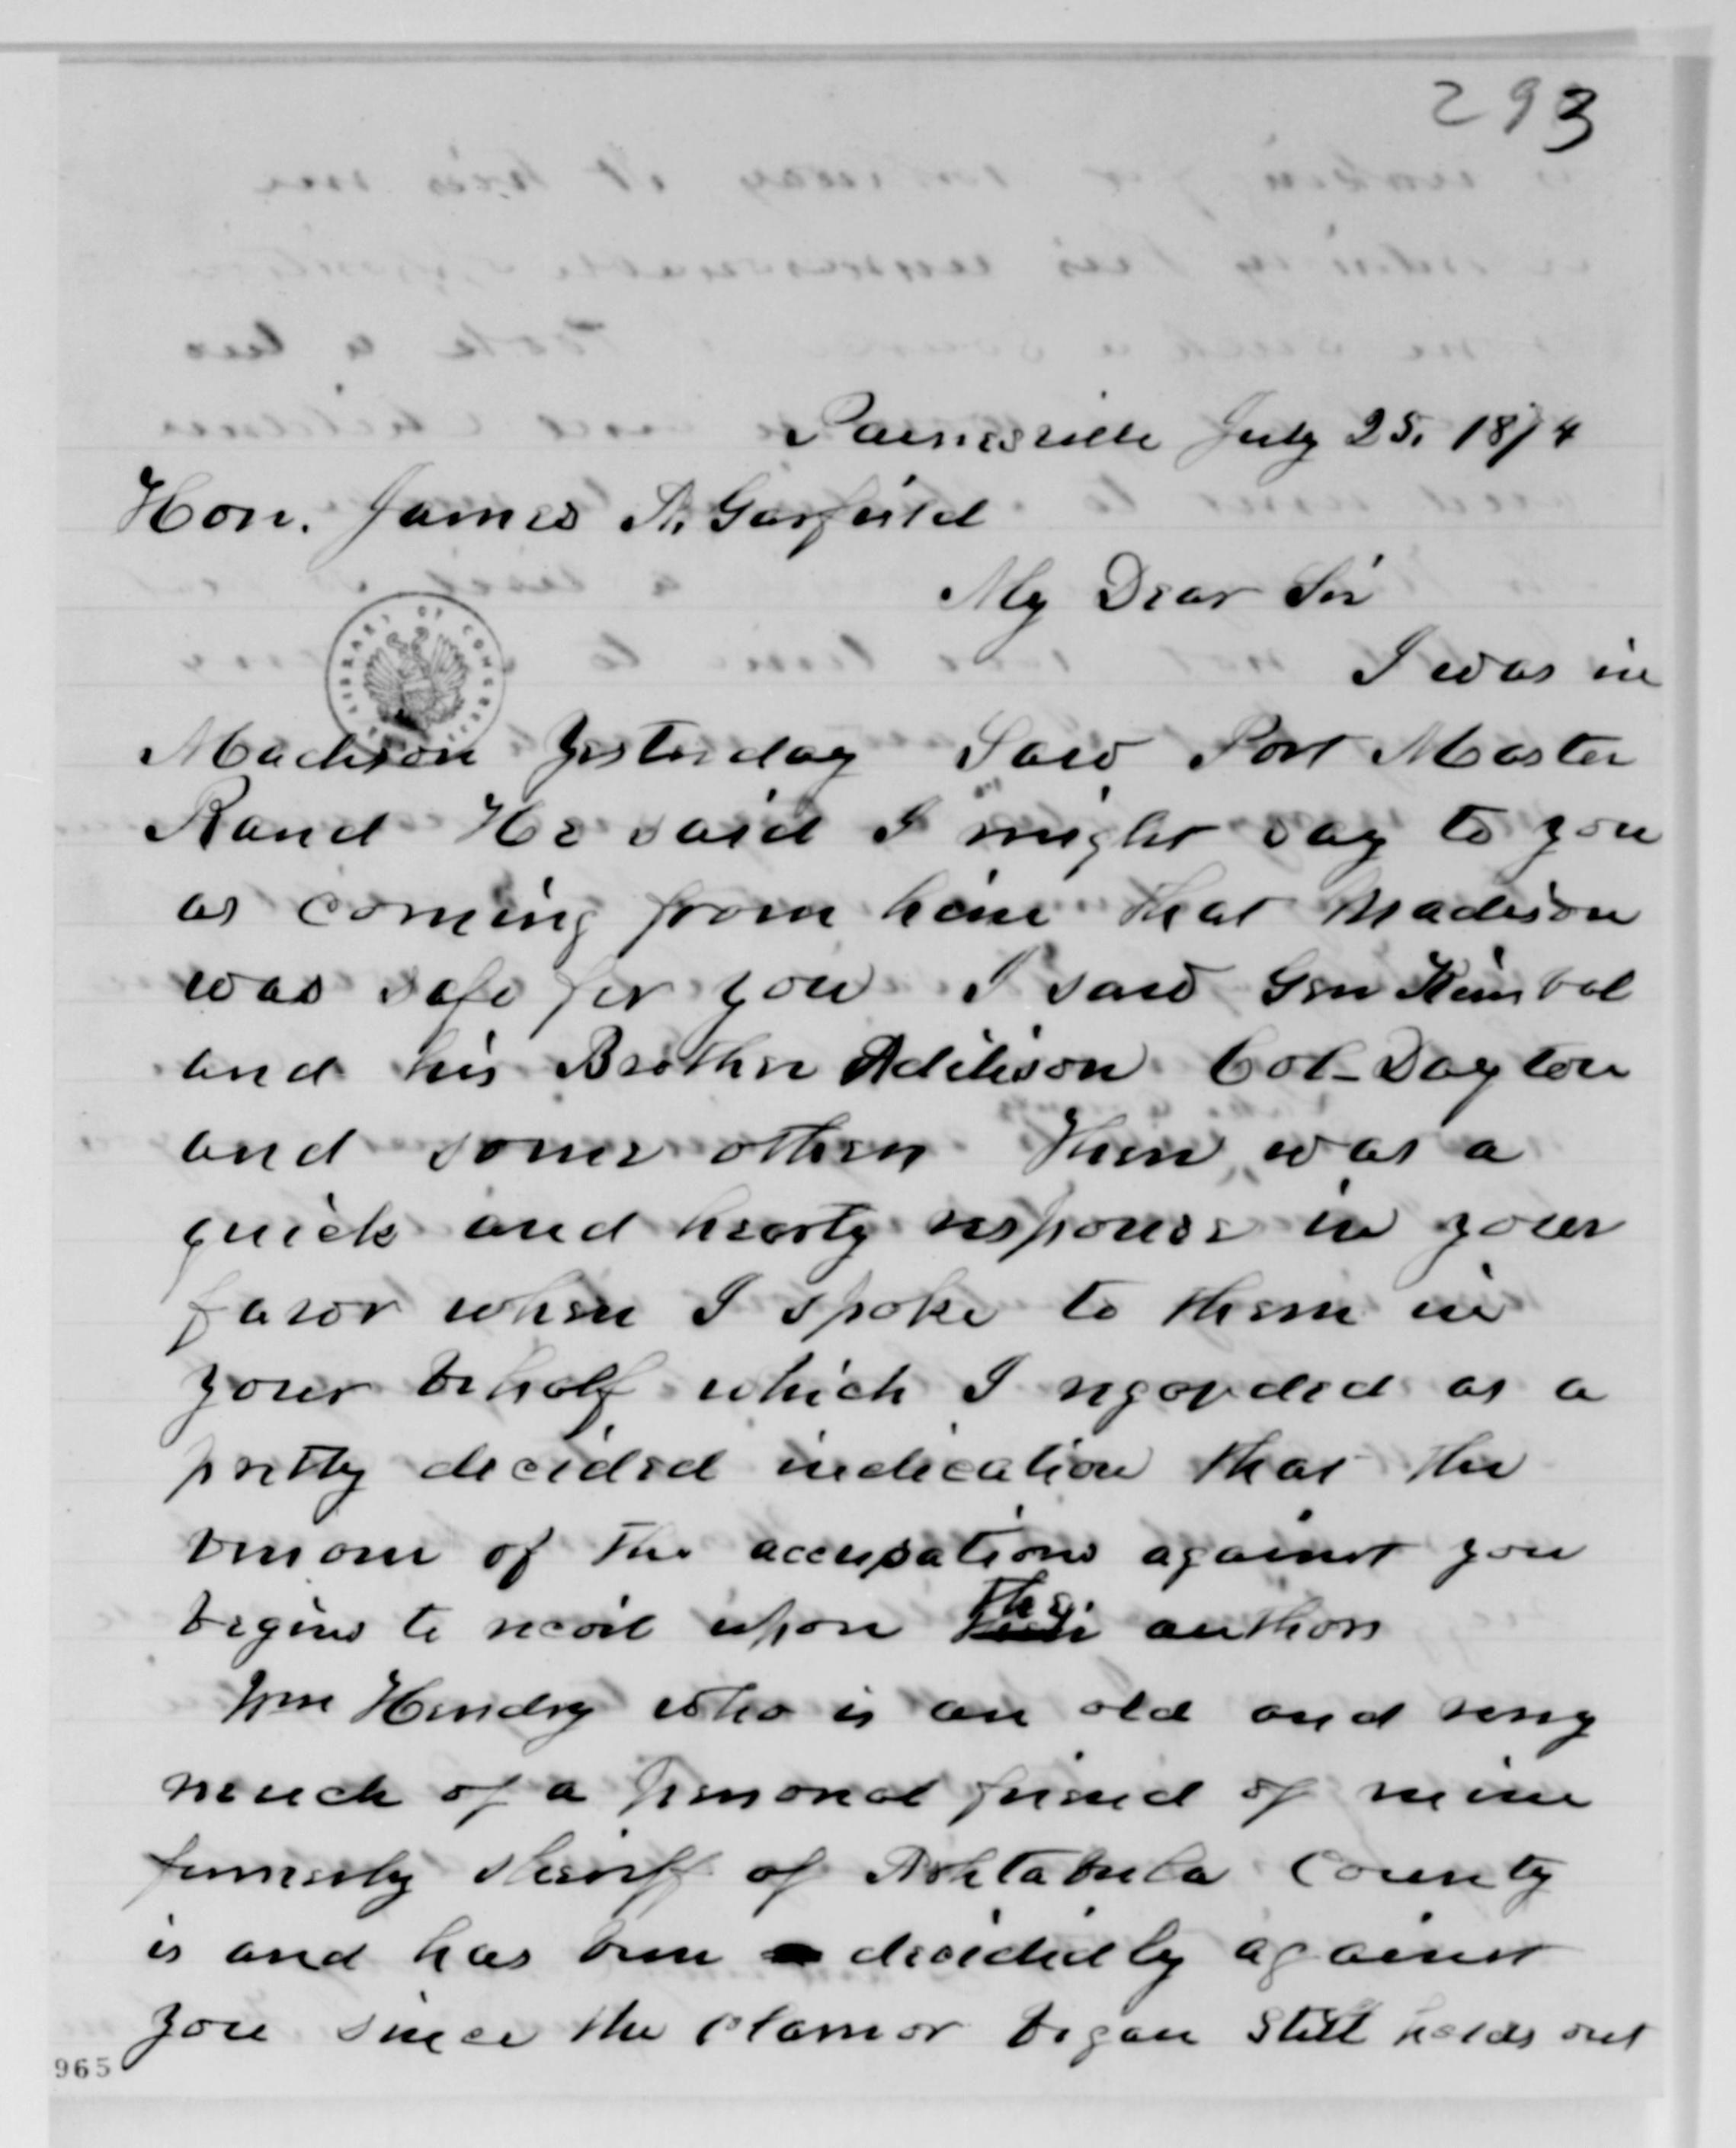 293
Painesville July 25. 1874
Hon. James A. Garfield
My Dear Sir
LIBRARY OF CONGRESS
I was in
Madison yesterday Saw Post Master
Rand He said I might say to you
as coming from him that Madison
was safe for you I saw Gen Kimbal
and his Brother Addison Col- Dayton
and some others There was a
quick and hearty response in your
favor when I spoke to them in
your behalf which I regarded as a
pretty decided indication that the
venom of the accusations against you
begins to recoil upon the authors
Wm Hendry who is an old and very
much of a personal friend of mine
formerly sheriff of Ashtabula County
is and has been decidedly against
you since the clamor began still holds out
965